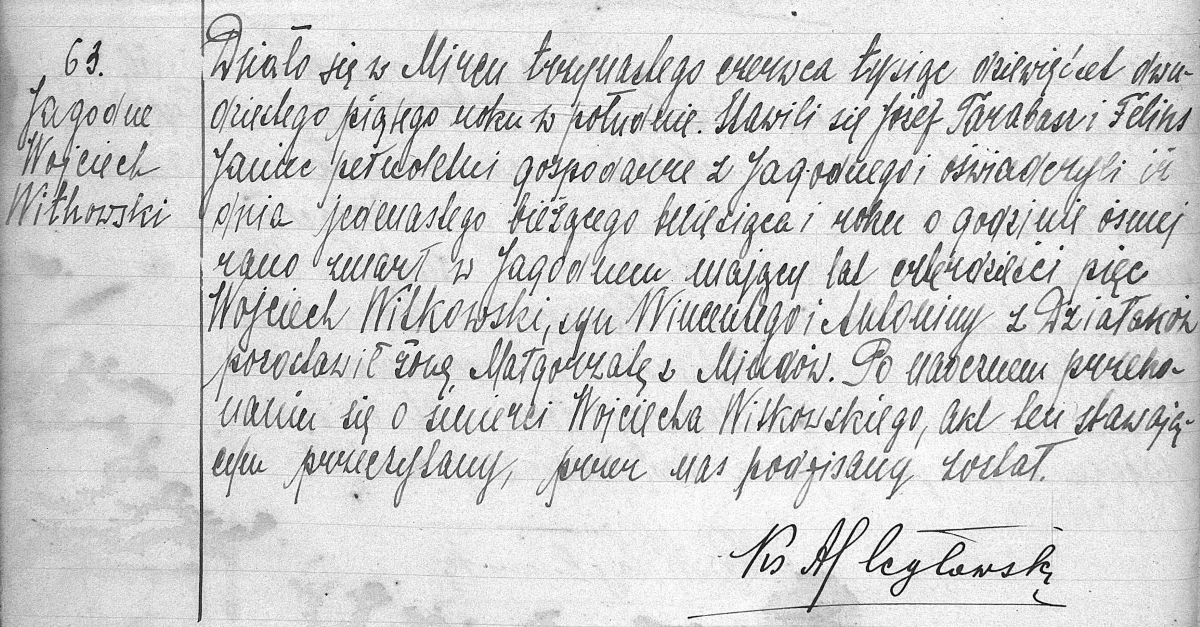 63.
Jagodne
Wojciech
Witkowski
Działo się w Mircu trzynastego czerwca tysiąc dziewięćset dwu-
dziestego piątego roku w południe. Stawili się Józef Tarabasz i Feliks
Janiec pełnoletni gospodarze z Jagodnego i oświadczyli iż
dnia jedenastego bieżącego miesiąca i roku o godzinie ósmej
rano zmarł w Jagodnem mający lat czterdzieści pięć
Wojciech Witkowski, syn Wincentego i Antoniny z Działaków
pozostawił żonę Małgorzatę z Miudów. Po naocznem przeko-
naniu się o śmierci Wojciecha Witkowskiego, akt ten stawają-
cym przeczytany, przez nas podpisany został.
Ks